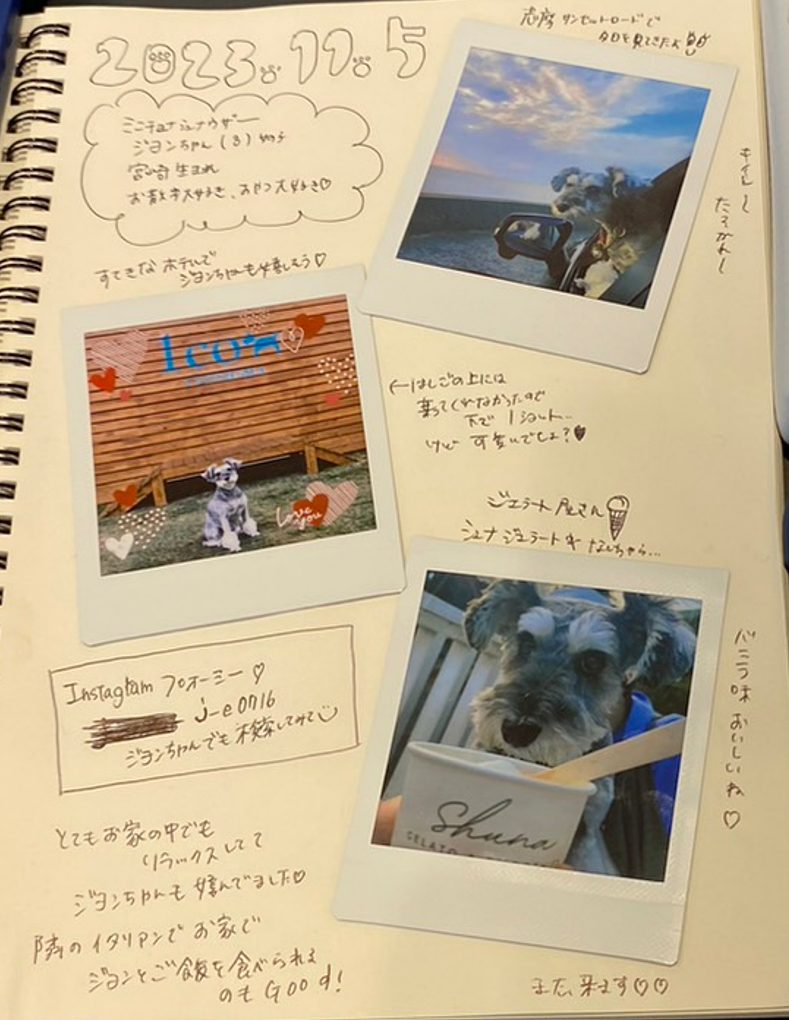 2023.11.5
志摩サンセットロードで
夕日を見てきたよ
ミニチュアシュナウザー
ジョンちゃん(3)
宮崎生まれ
お散歩大好き、おやつ大好き♡
キイレー
たそがれー
すてきなホテルで
ジョンちゃんも嬉しそう♡
1co
Love you
←はしごの上には
乗ってくれなかったので
下で1ショット…
けど可愛いでしょ?♥
ジェラート屋さん
シュナジェラート
Shuna
GELATO
バニラ味おいしいね♡
Instagram フォローミー♡
j-e0716
ジョンちゃんでも検索してみて
とてもお家の中でも
リラックスしてて
ジョンちゃんも喜んでました♡
隣のイタリアンでお家で
ジョンとご飯を食べられる
のもGood!
また、来ます♡♡